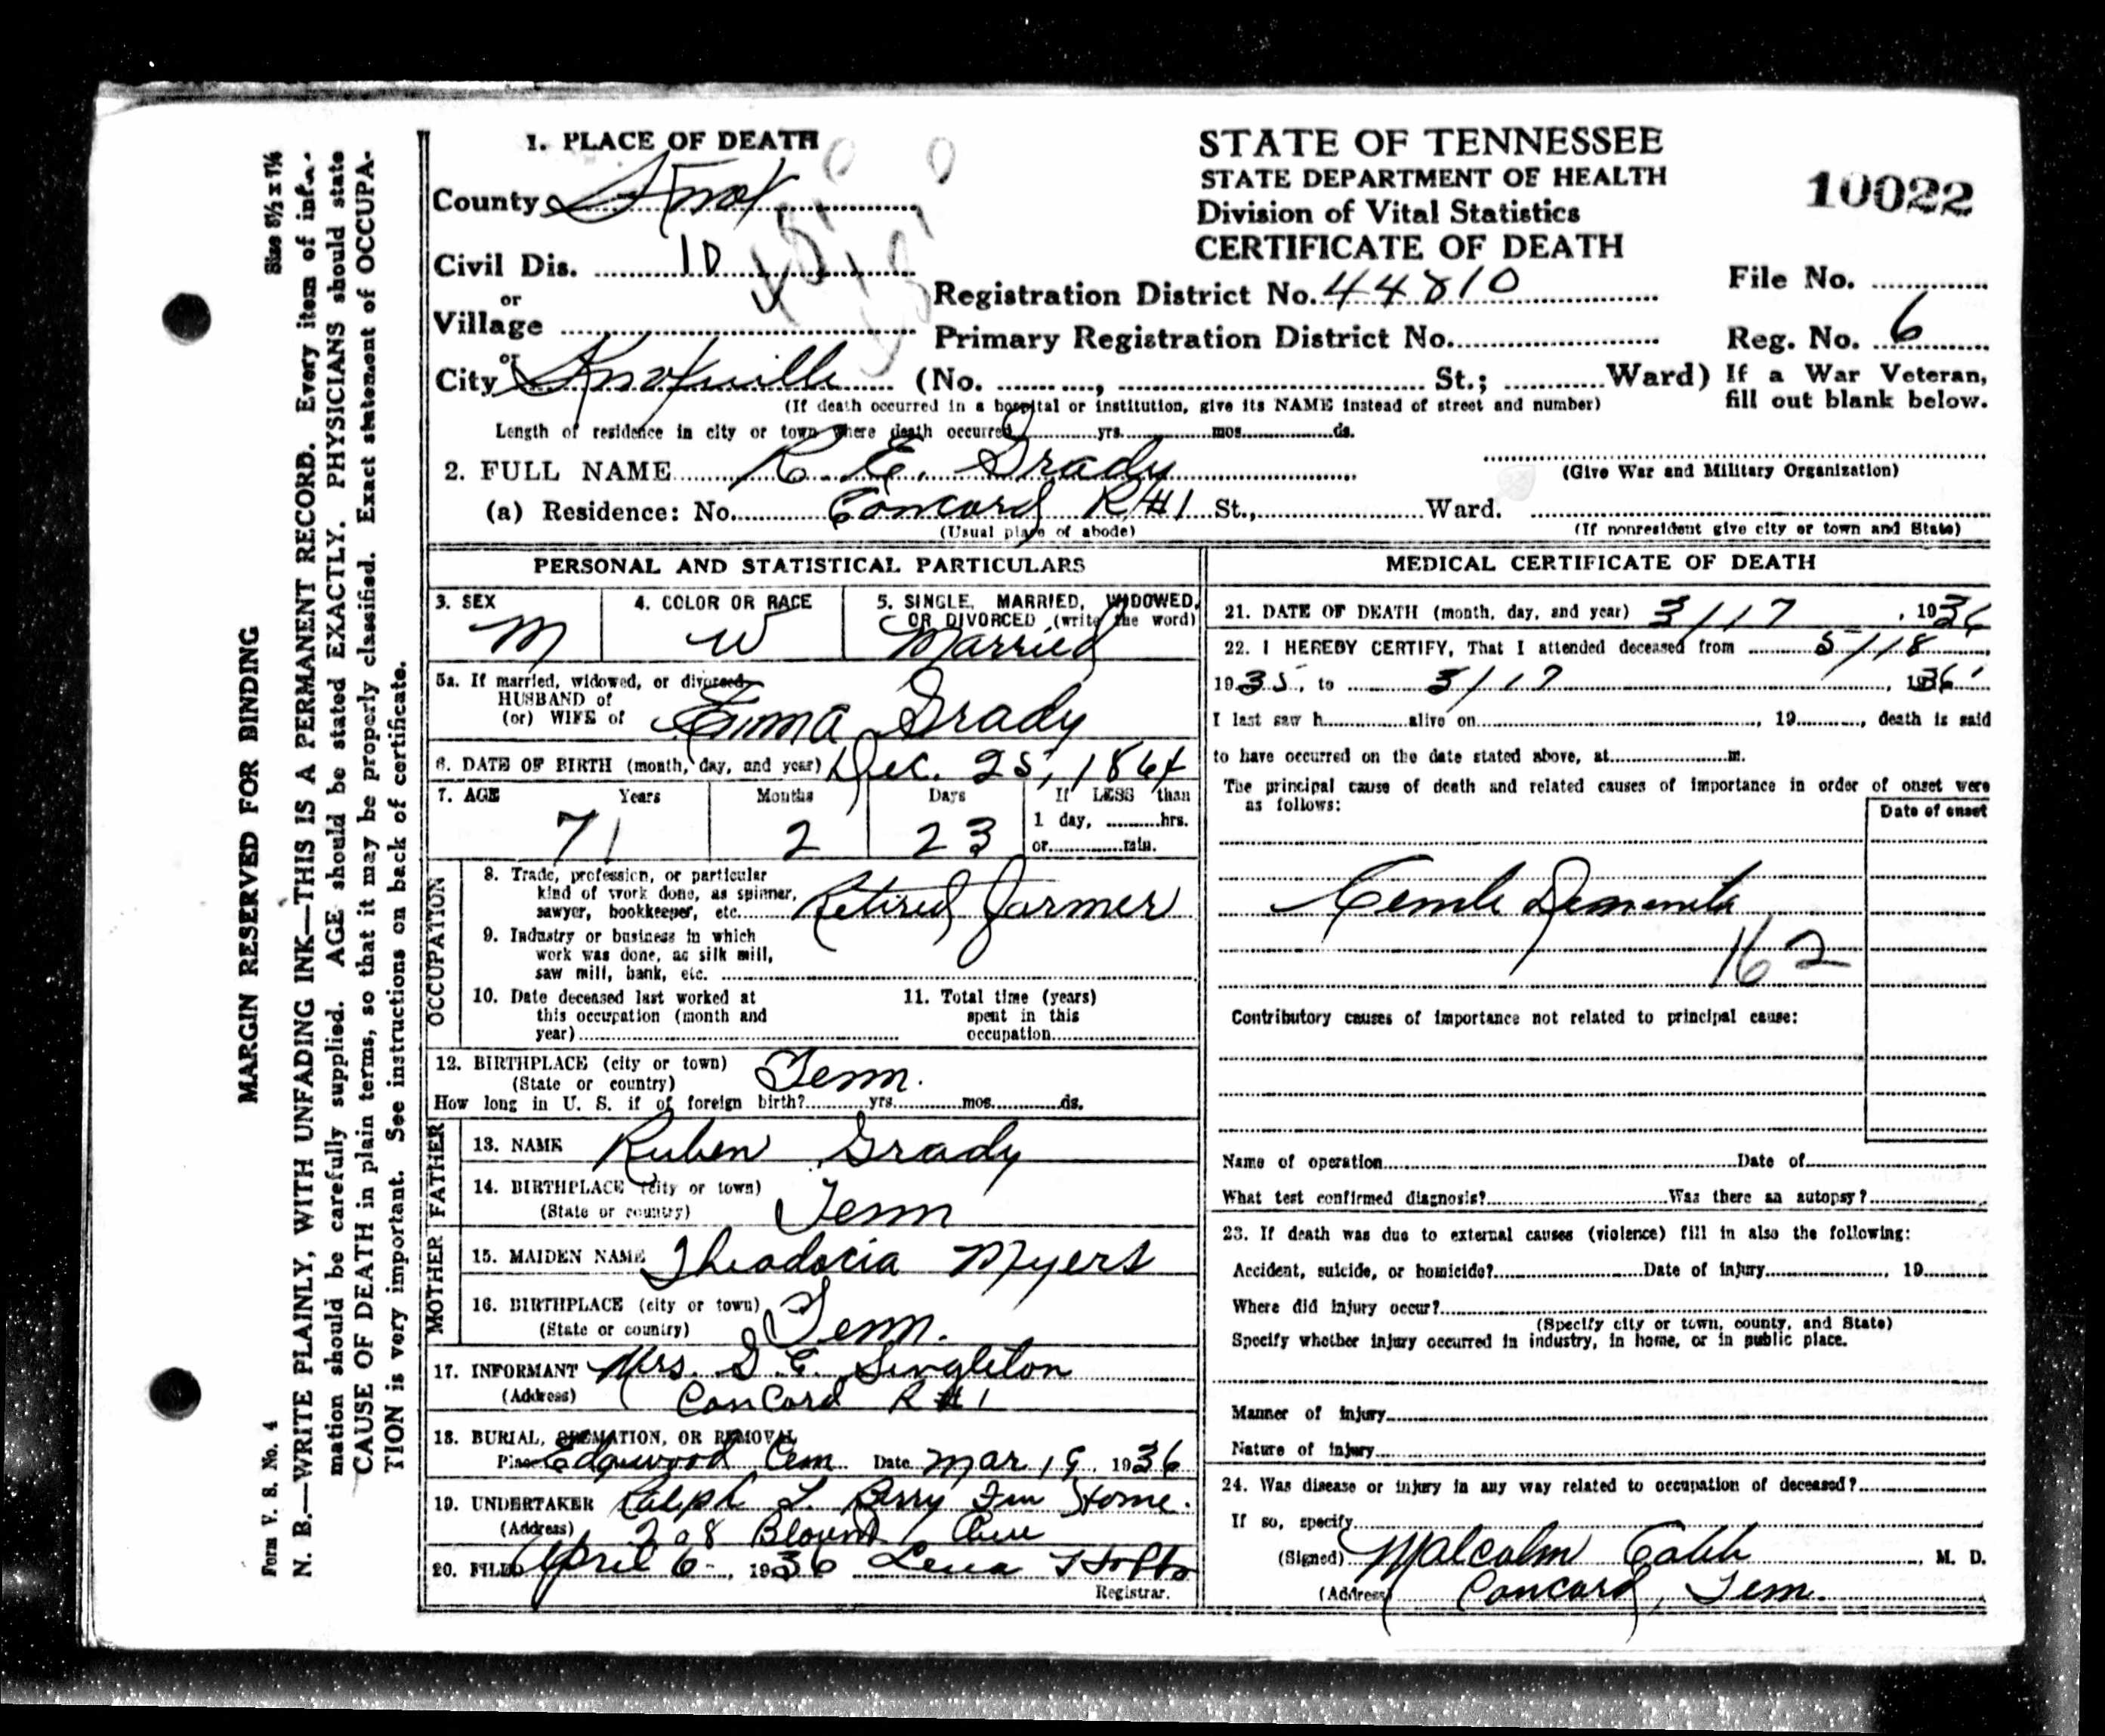 Size 8½ x 7¼
MARGIN RESERVED FOR BINDING
N. B.—WRITE PLAINLY, WITH UNFADING INK—THIS IS A PERMANENT RECORD. Every item of infor-
mation should be carefully supplied. AGE should be stated EXACTLY. PHYSICIANS should state
CAUSE OF DEATH in plain terms, so that it may be properly classified. Exact statement of OCCUPA-
TION is very important. See instructions on back of certificate.
Form V. S. No. 4
1. PLACE OF DEATH
County Knox
Civil Dis. 10
or
Village
or
City Knoxville (No. , St.; Ward)
STATE OF TENNESSEE
STATE DEPARTMENT OF HEALTH
Division of Vital Statistics
CERTIFICATE OF DEATH
10022
Registration District No. 44810
File No.
Primary Registration District No.
Reg. No. 6
If a War Veteran,
fill out blank below.
(If death occurred in a hospital or institution, give its NAME instead of street and number)
Length of residence in city or town where death occurred yrs. mos. ds.
2. FULL NAME R E. Grady
(Give War and Military Organization)
(a) Residence: No. Concord R#1 St., Ward.
(Usual place of abode)
(If nonresident give city or town and State)
PERSONAL AND STATISTICAL PARTICULARS
3. SEX M
4. COLOR OR RACE W
5. SINGLE, MARRIED, WIDOWED,
OR DIVORCED (write the word)
Married
5a. If married, widowed, or divorced
HUSBAND of
(or) WIFE of Emma Grady
6. DATE OF BIRTH (month, day, and year) Dec. 25, 1864
7. AGE Years Months Days If LESS than
71 2 23 1 day, hrs.
or min.
OCCUPATION
8. Trade, profession, or particular
kind of work done, as spinner,
sawyer, bookkeeper, etc. Retired Farmer
9. Industry or business in which
work was done, as silk mill,
saw mill, bank, etc.
10. Date deceased last worked at
this occupation (month and
year)
11. Total time (years)
spent in this
occupation
12. BIRTHPLACE (city or town)
(State or country) Tenn.
How long in U. S. if of foreign birth? yrs. mos. ds.
FATHER
13. NAME Ruben Grady
14. BIRTHPLACE (city or town)
(State or country) Tenn
MOTHER
15. MAIDEN NAME Theodocia Myers
16. BIRTHPLACE (city or town)
(State or country) Tenn.
17. INFORMANT Mrs. S. E. Singleton
(Address) Concord R#1
18. BURIAL, CREMATION, OR REMOVAL
Place Edgewood Cem. Date Mar 19, 1936
19. UNDERTAKER Ralph L. Berry Fun Home.
(Address) 208 Blount Ave
20. FILED April 6, 1936 Lena
Registrar.
MEDICAL CERTIFICATE OF DEATH
21. DATE OF DEATH (month, day, and year) 3/17, 1936
22. I HEREBY CERTIFY, That I attended deceased from 5/18,
1935, to 3/17, 1936
I last saw h alive on , 19 , death is said
to have occurred on the date stated above, at m.
The principal cause of death and related causes of importance in order of onset were
as follows:
Date of onset
Dementia
162
Contributory causes of importance not related to principal cause:
Name of operation Date of
What test confirmed diagnosis? Was there an autopsy?
23. If death was due to external causes (violence) fill in also the following:
Accident, suicide, or homicide? Date of injury , 19
Where did injury occur?
(Specify city or town, county, and State)
Specify whether injury occurred in industry, in home, or in public place.
Manner of injury
Nature of injury
24. Was disease or injury in any way related to occupation of deceased?
If so, specify
(Signed) Malcolm Cobb , M. D.
(Address) Concord, Tenn.